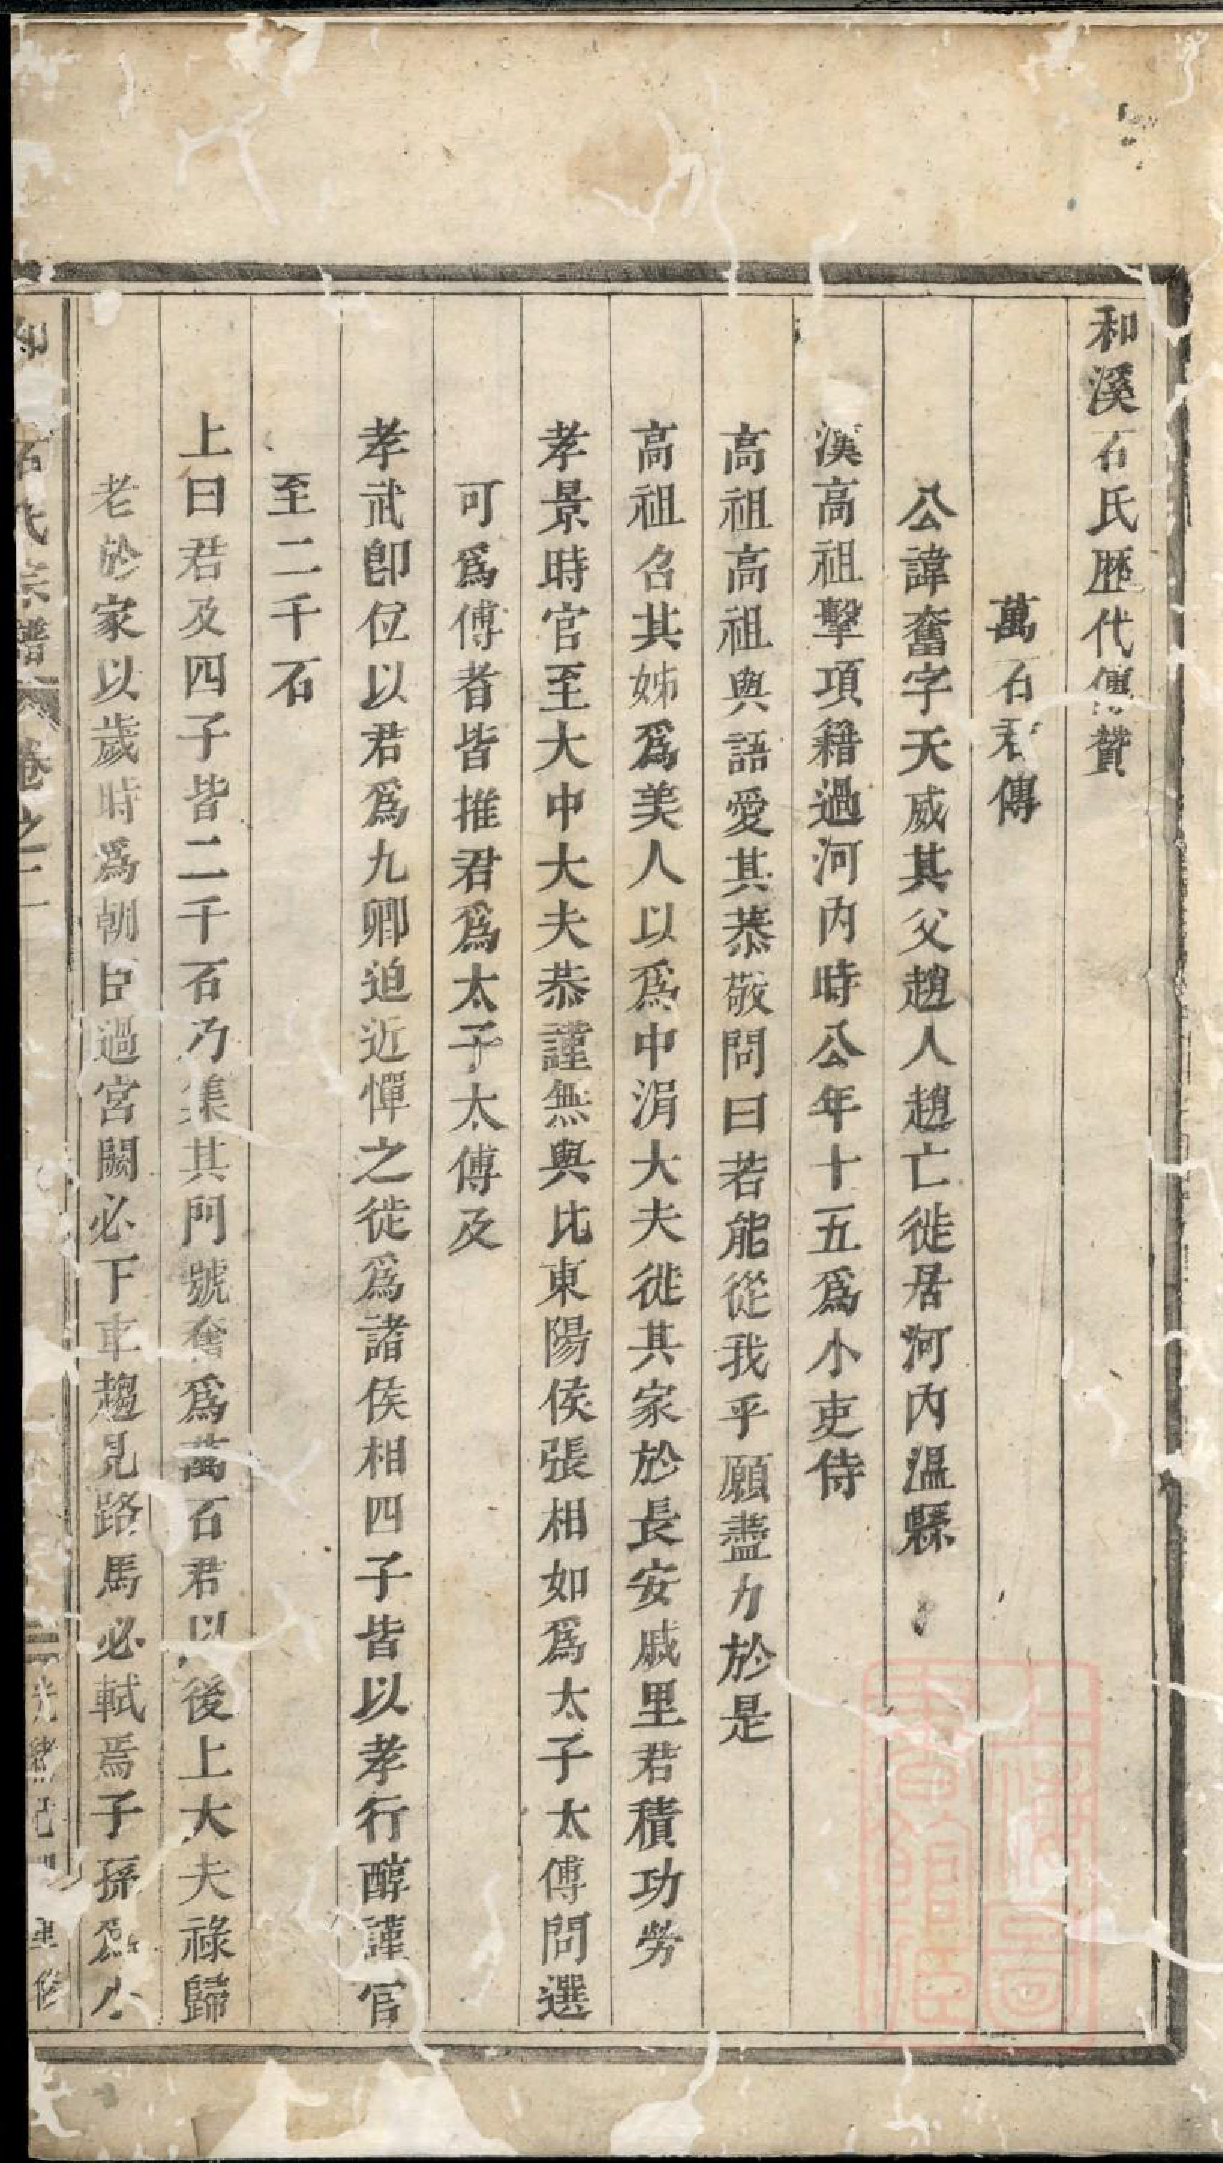 和溪石氏歷代傳贊
萬石君傳
公諱奮字天威其父趙人趙亡徙居河內溫縣
漢高祖擊項籍過河內時公年十五爲小吏侍
高祖高祖與語愛其恭敬問曰若能從我乎願盡力於是
高祖召其姊爲美人以爲中涓大夫徙其家於長安戚里君積功勞
孝景時官至大中大夫恭謹無與比東陽侯張相如爲太子太傅問選
可爲傅者皆推君爲太子太傅及
孝武卽位以君爲九卿迫近憚之徙爲諸侯相四子皆以孝行醇謹官
至二千石
上曰君及四子皆二千石乃集其門號奮爲萬石君以後上大夫祿歸
老於家以歲時爲朝臣過宮闕必下車趨見路馬必軾焉子孫爲小
石氏宗譜 卷之二
光緒己 重修
上海圖書館藏